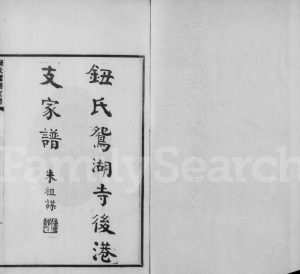 鈕氏鴛湖寺後港
支家譜
朱祖謀
FamilySearch